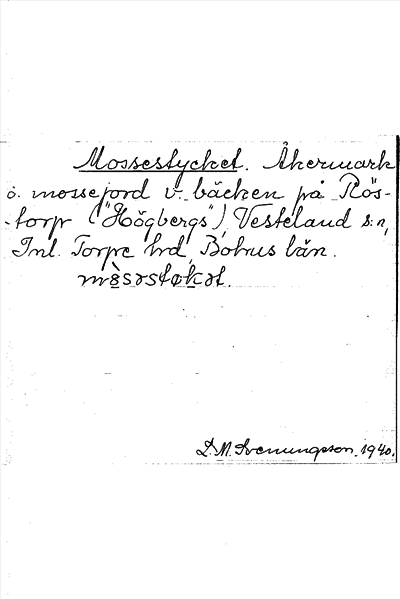 Mossestycket. Åkermark
o. mossejord v. bäcken på Rös-
-torp ("Högbergs"), Vesteland s:n,
Inl. Torpe hrd, Bohus län.
D. M. Svenungsson. 1940.